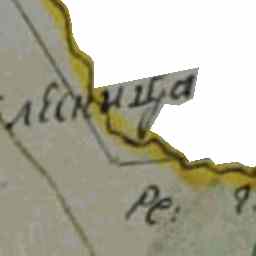 лесница
Ре: